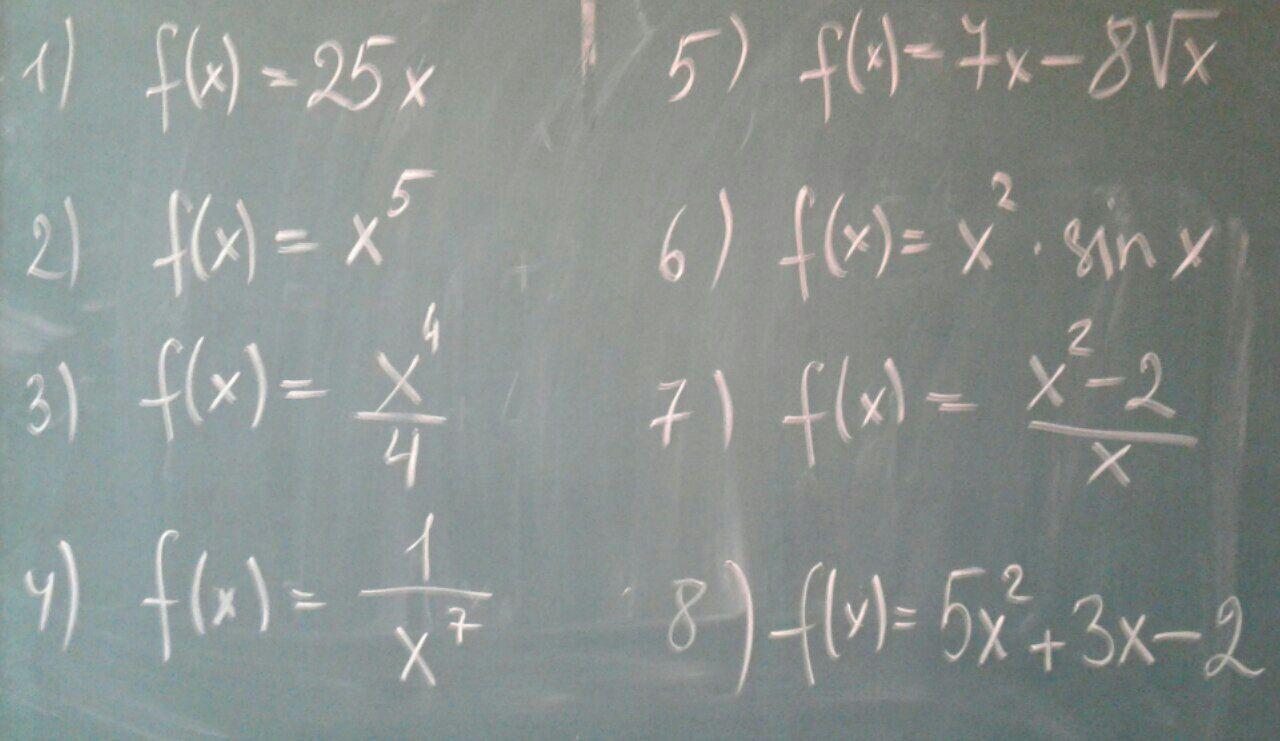 1) f(x) = 25x
2) f(x) = x⁵
3) f(x) = x⁴/4
4) f(x) = 1/x⁷
5) f(x) = 7x - 8√x
6) f(x) = x² · sin x
7) f(x) = (x² - 2)/x
8) f(x) = 5x² + 3x - 2